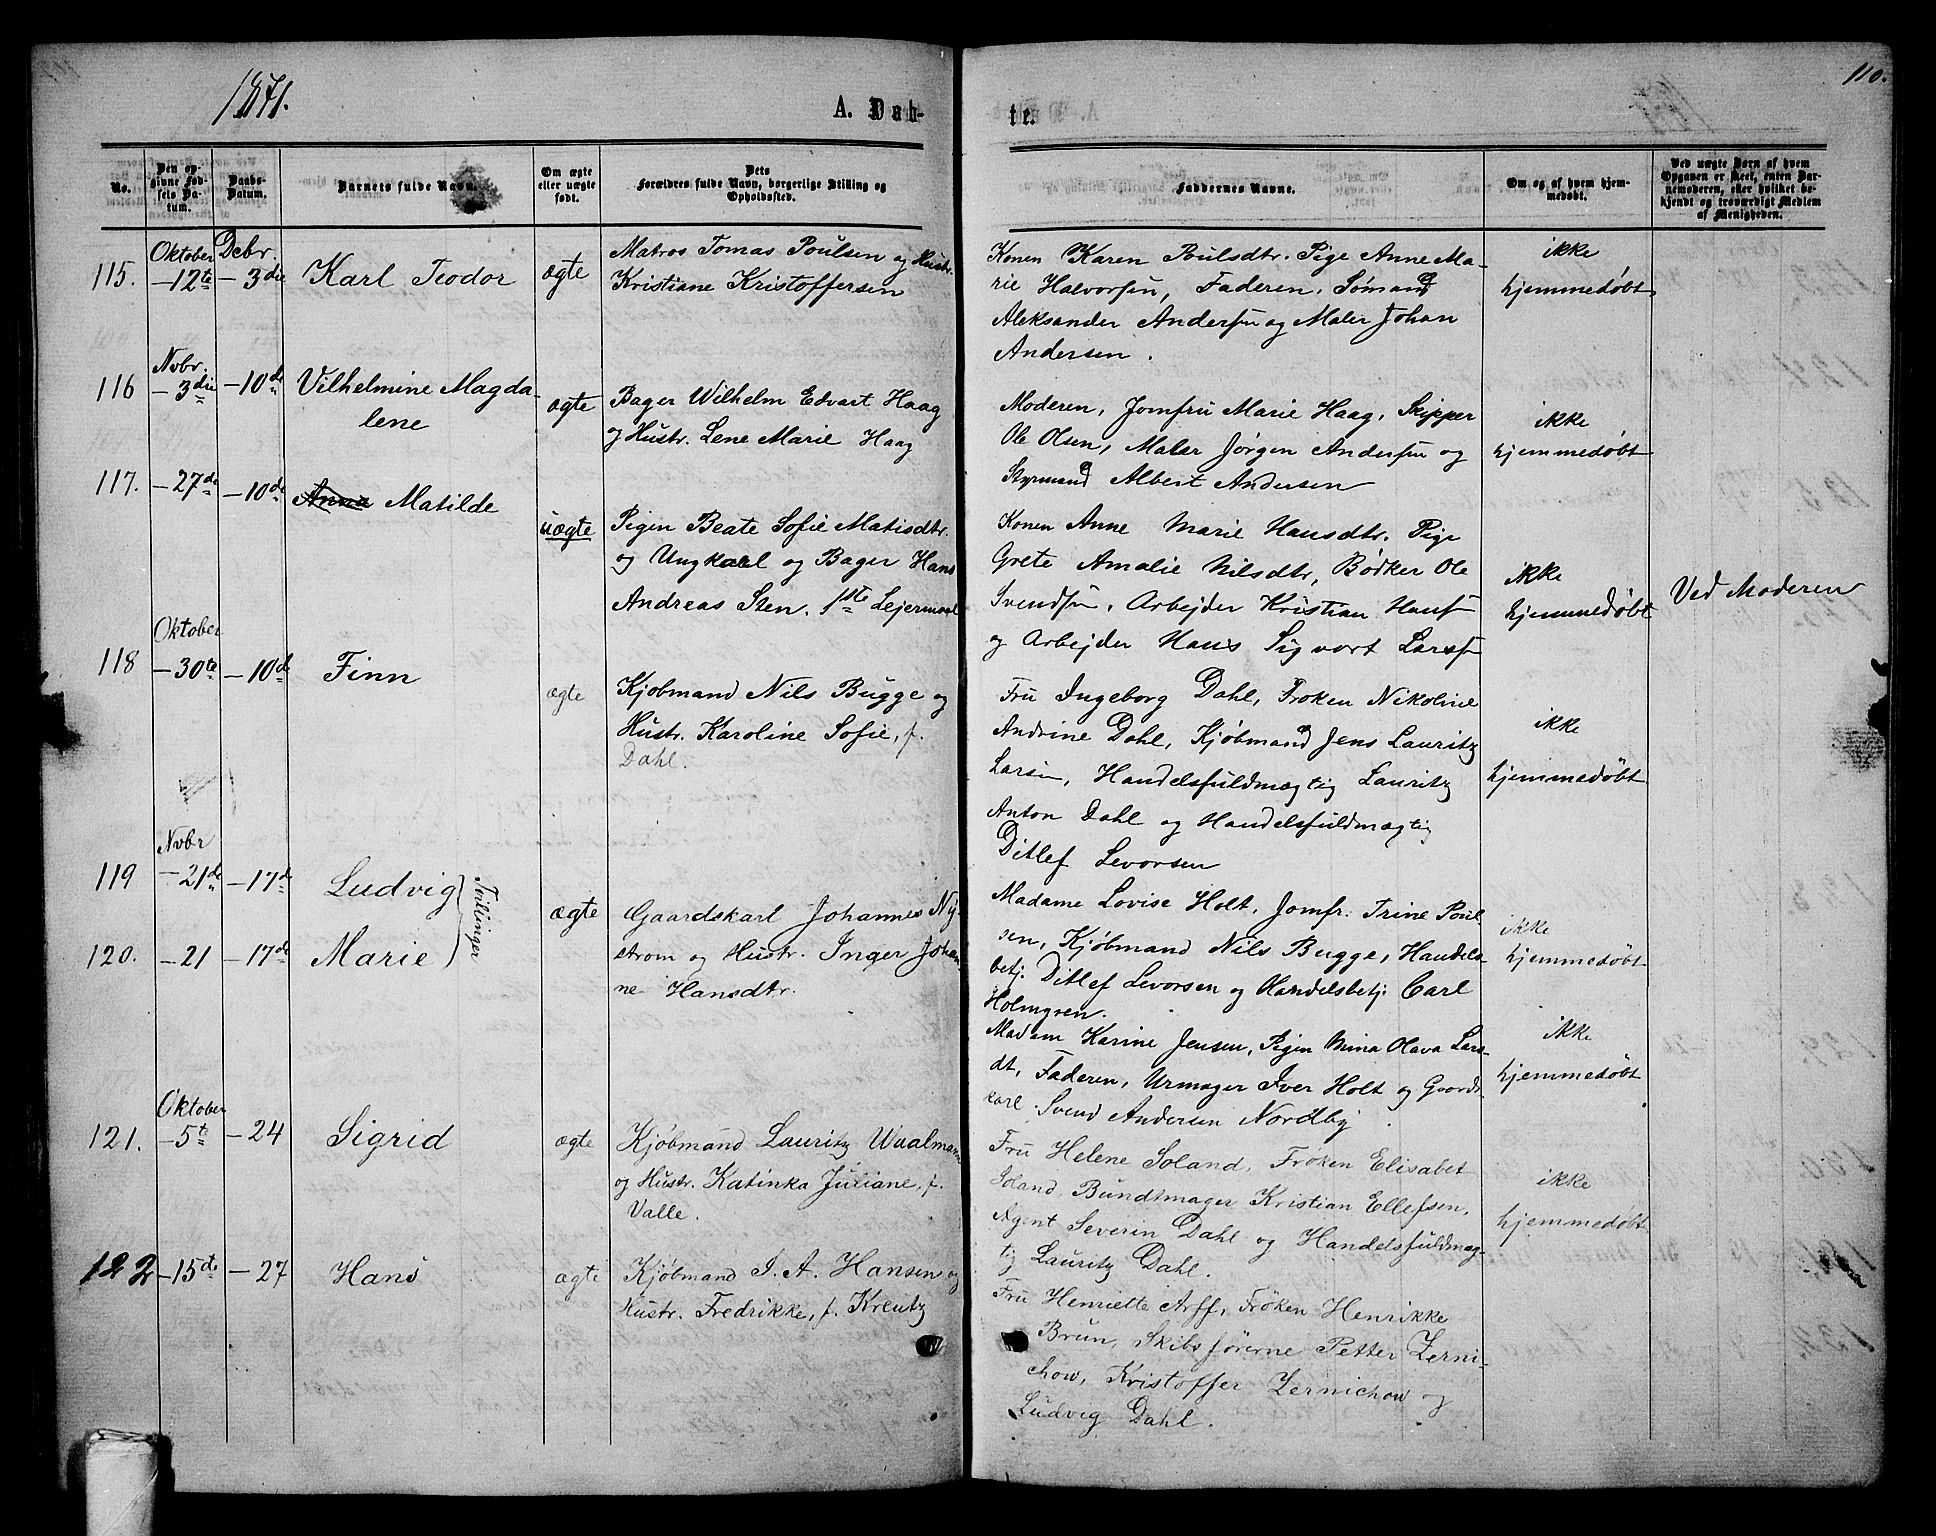 1871.
A. Døb-
te.
110.
No.
Den opgivne Fødsels Datum.
Daabs-Datum.
Barnets fulde Navn.
Om ægte eller uægte født.
Dets Forældres fulde Navn, borgerlige Stilling og Opholdssted.
Faddernes Navne.
Om og af hvem hjemmedøbt.
Ved uægte Børn af hvem Opgaven er skeet, enten Barnemoderen, eller hvilket bekjendt og troværdigt Medlem af Menigheden.
115.
Oktober
– 12te
Debr.
– 3die
Karl Teodor
ægte
Matros Tomas Poulsen og Hustr.
Kristiane Kristoffersen
Konen Karen Poulsdtr. Pige Anne Ma-
rie Halvorsen, Faderen, Sømand
Aleksander Andersen og Maler Johan
Andersen.
ikke
hjemmedøbt
116
Novbr.
– 3die
– 10de
Vilhelmine Magda-
lene
ægte
Bager Wilhelm Edvart Haag
og Hustr. Lene Marie Haag
Moderen, Jomfru Marie Haag, Skipper
Ole Olsen, Maler Jørgen Andersen og
Styrmand Albert Andersen
ikke
hjemmedøbt
117.
– 27de
– 10de
Anna Matilde
uægte
Pigen Beate Sofie Matisdtr.
og Ungkarl og Bager Hans
Andreas Sten. 1ste Lejermaal
Konen Anne Marie Hansdtr. Pige
Grete Amalie Nilsdtr, Bødker Ole
Svendsen, Arbejder Kristian Hansen
og Arbejder Hans Sigvort Larsen
ikke
hjemmedøbt
Ved Moderen
118
Oktober
– 30te
– 10de
Finn
ægte
Kjøbmand Nils Bugge og
Hustr. Karoline Sofie, f.
Dahl.
Fru Ingeborg Dahl, Frøken Nikoline
Andrine Dahl, Kjøbmand Jens Lauritz
Larsen, Handelsfuldmægtig Lauritz
Anton Dahl og Handelsfuldmægtig
Ditlef Levorsen
ikke
hjemmedøbt
119
Novbr
– 21de
– 17de
Ludvig
Tvillinger
120.
– 21
– 17de
Marie
ægte
Gaardskarl Johannes Ny-
strom og Hustr. Inger Johan-
ne Hansdtr.
Madame Lovise Holt, Jomfr. Trine Poul-
sen, Kjøbmand Nils Bugge, Handels-
betj. Ditlef Levorsen og Handelsbetj. Carl
Holmgren.
ikke
hjemmedøbt
Madam Karine Jensen, Pigen Mina Olava Lars-
dt, Faderen, Urmager Iver Holt og Gaards-
karl Svend Andersen Nordby.
ikke
hjemmedøbt
121.
Oktober
– 5te
– 24
Sigrid
ægte
Kjøbmand Lauritz Waalmann
og Hustr. Katinka Juliane, f.
Valle.
Fru Helene Soland, Frøken Elisabet
Soland, Bundtmager Kristian Ellefsen,
Agent Severin Dahl og Handelsfuldmæg-
tig Lauritz Dahl.
ikke
hjemmedøbt
122
– 15de
– 27
Hans
ægte
Kjøbmand I. A. Hansen og
Hustr. Fredrikke, f. Kreutz
Fru Henriette Arff, Frøken Henrikke
Brun, Skibsførerne Petter Zerni-
chow, Kristoffer Zernichow og
Ludvig Dahl.